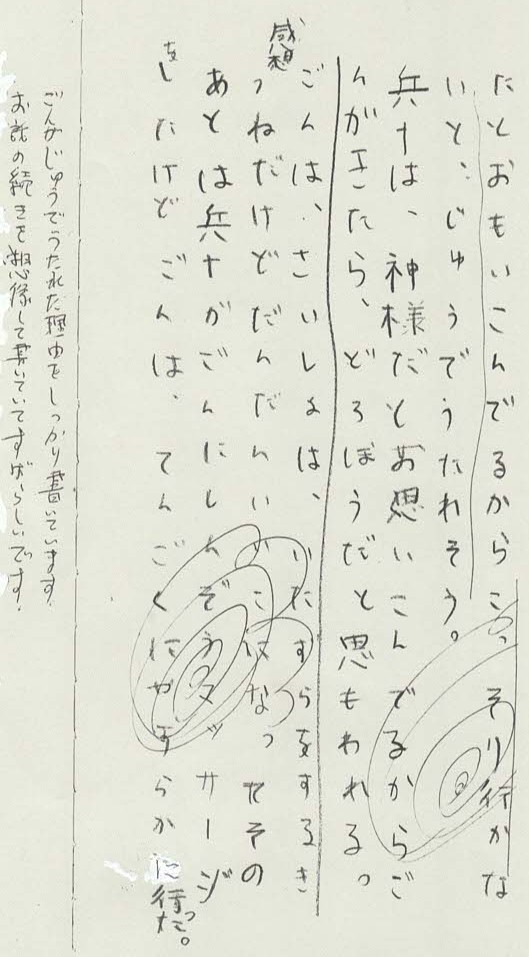 たとおもいこんでるからこっそり行かな
いと、じゅうでうたれそう。
兵十は、神様だとお思いこんでるからご
んがきたら、どろぼうだと思もわれる。
感想
ごんは、さいしょは、いたずらをするき
つねだけどだんだんいいこになったその
あとは兵十がごんにしんぞうマッサージ
をしたけどごんは、てんごくにやすらかに行った。
ごんがじゅうでうたれた理由をしっかり書いています。
お話の続きを想像して書いていてすばらしいです。